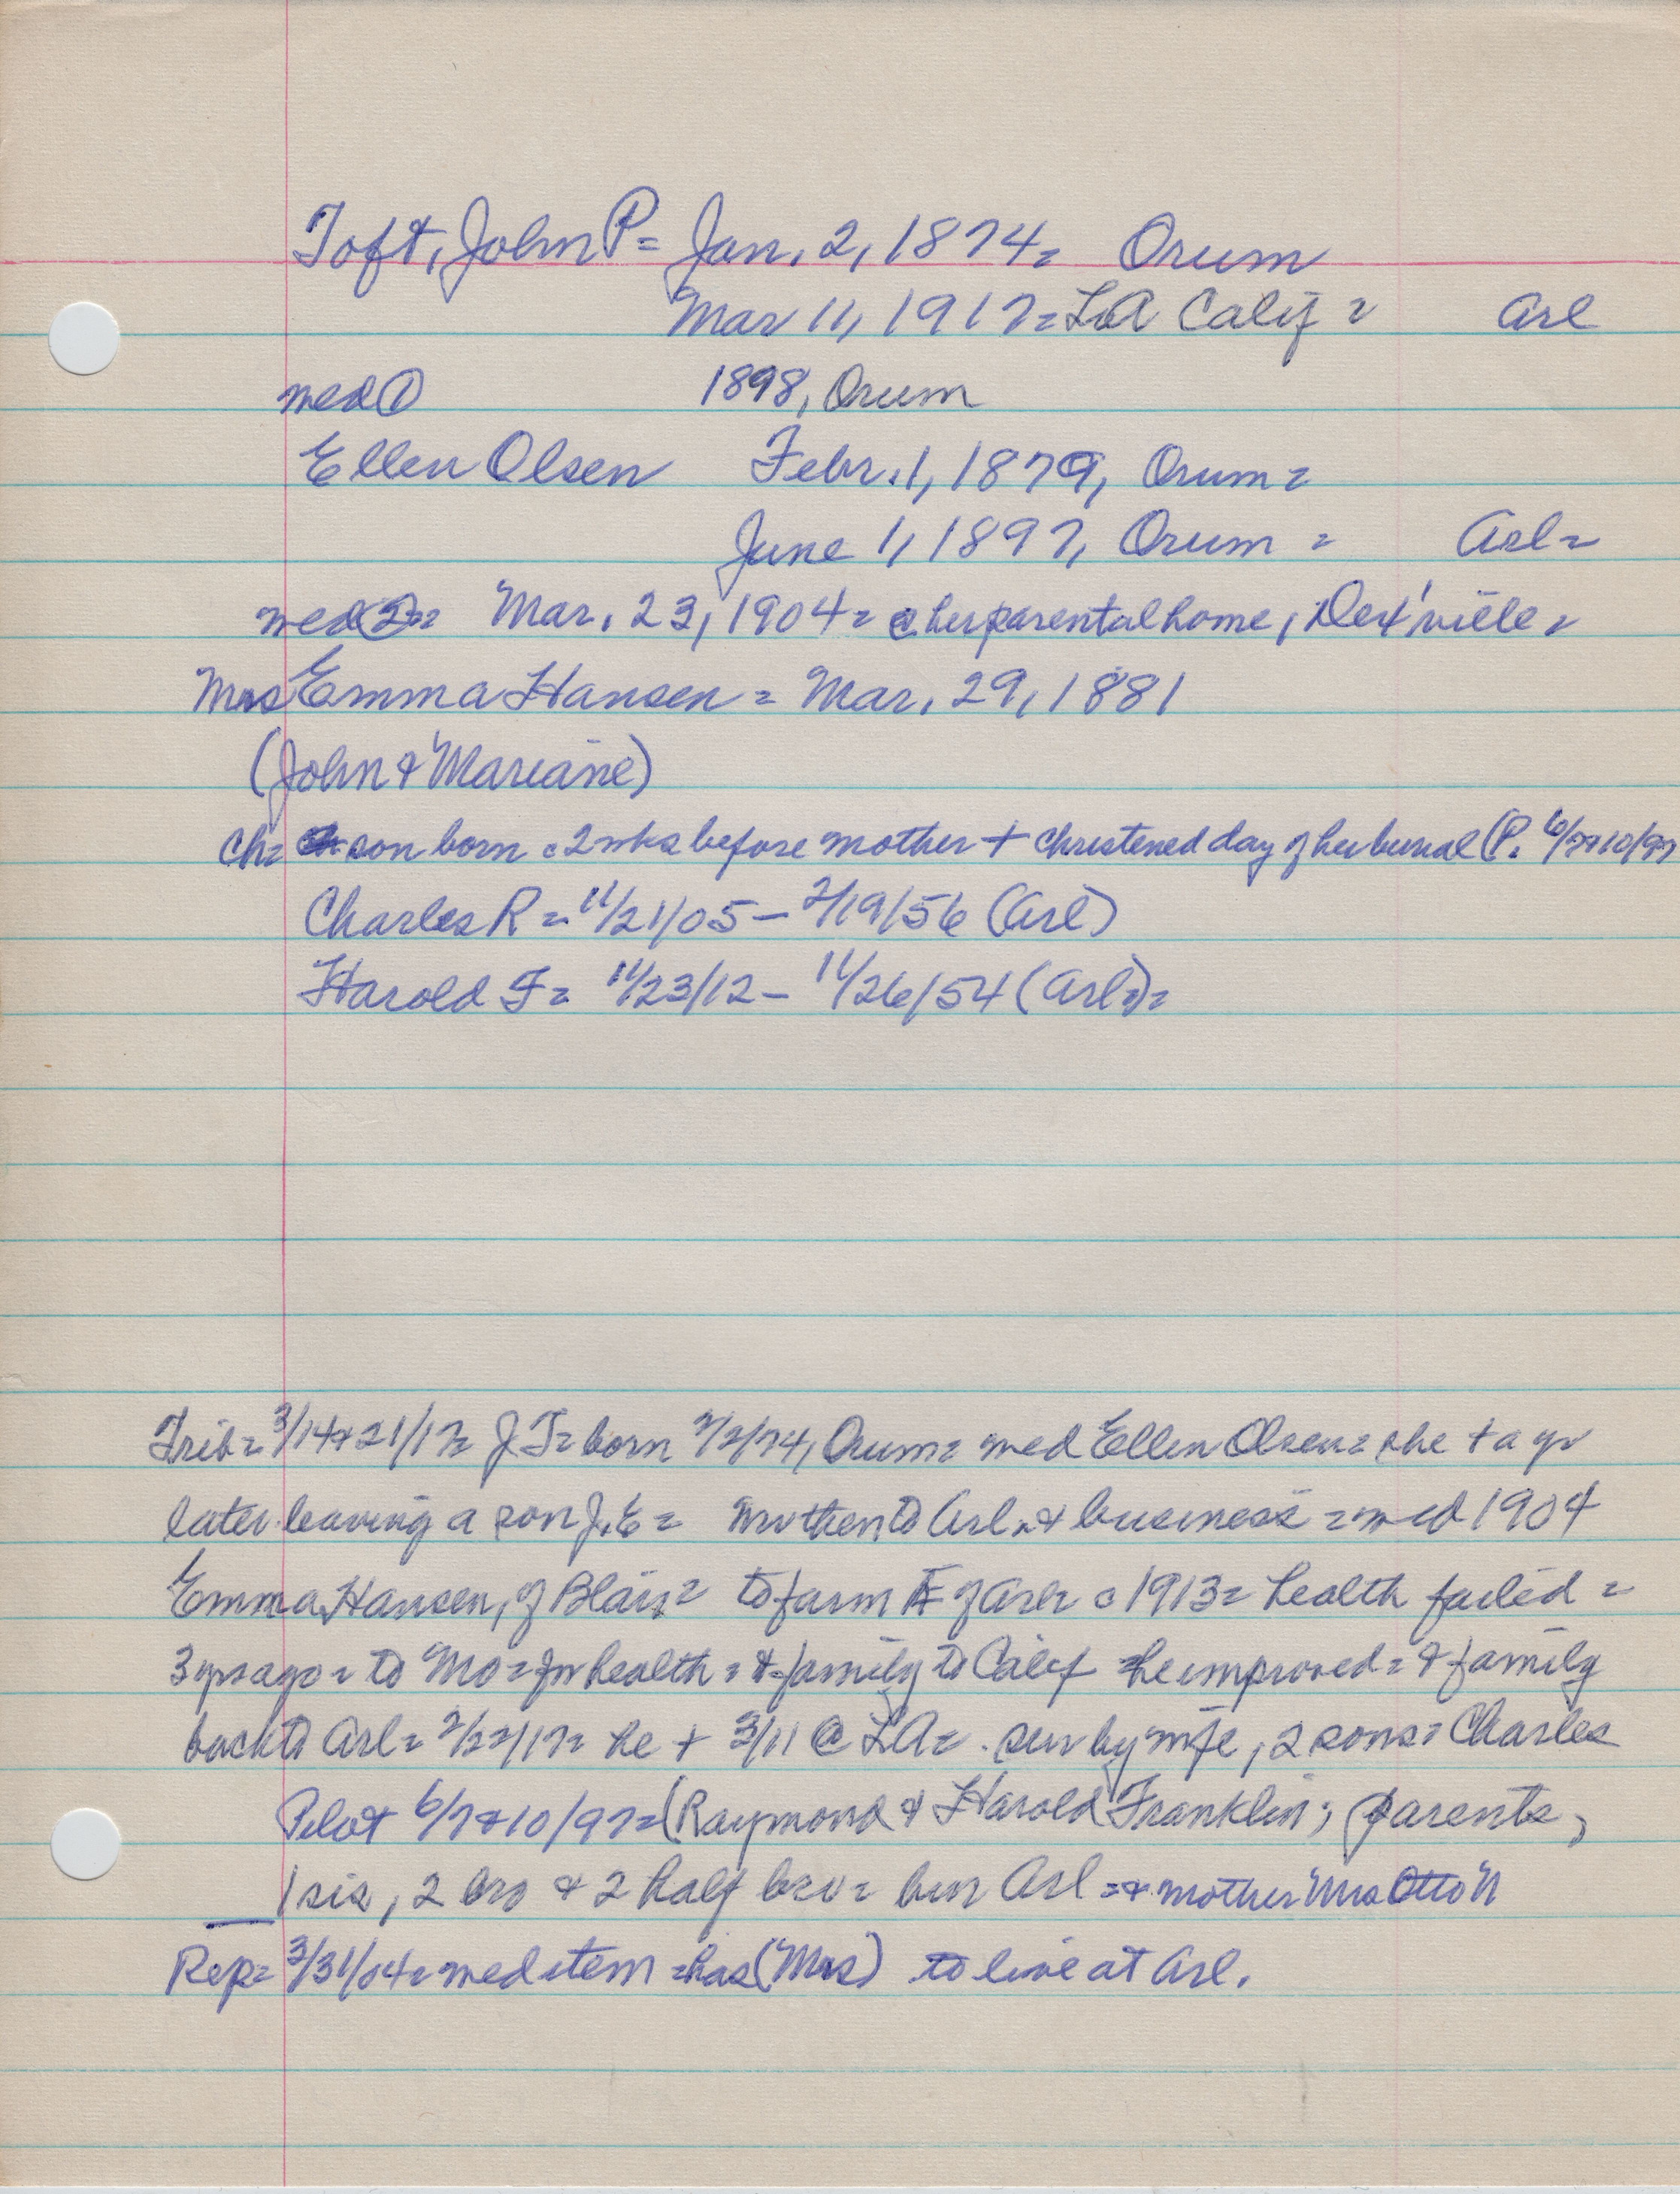 Toft, John P= Jan. 2, 1874= Orum
Mar 11, 1917= LA Calif = Arl
med ① 1898, Orum
Ellen Olsen Febr. 1, 1879, Orum=
June 1, 1897, Orum = Arl=
med ②= Mar. 23, 1904= @ her parental home, DeX'ville=
Mrs Emma Hansen = Mar. 29, 1881
(John & Mariane)
Ch= son born c 2 wks before mother + christened day of her burial (P. 6/7&10/97
Charles R = 11/21/05 - 2/19/56 (Arl)
Harold F= 11/23/12 - 11/26/54 (Arl=)=
Trib= 3/14&21/17= J T= born 2/2/74, Orum= med Ellen Olsen= she + a yr
later leaving a son J.E = mv then to Arl. & business = med 1904
Emma Hansen, of Blair= to farm of Arl= c 1913= health failed =
3 yrs ago= to Mo= for health= & family to Calif he improved= & family
back to Arl= 2/22/17= he + 3/11 @ LA=. sur by wife, 2 sons= Charles
Pilot 6/7&10/97= (Raymond & Harold Franklin; parents,
1 sis, 2 bro & 2 half bro= bur Arl =& mother "Mrs Otto"
Rep= 3/31/04= med item =has (Mrs) to live at Arl.